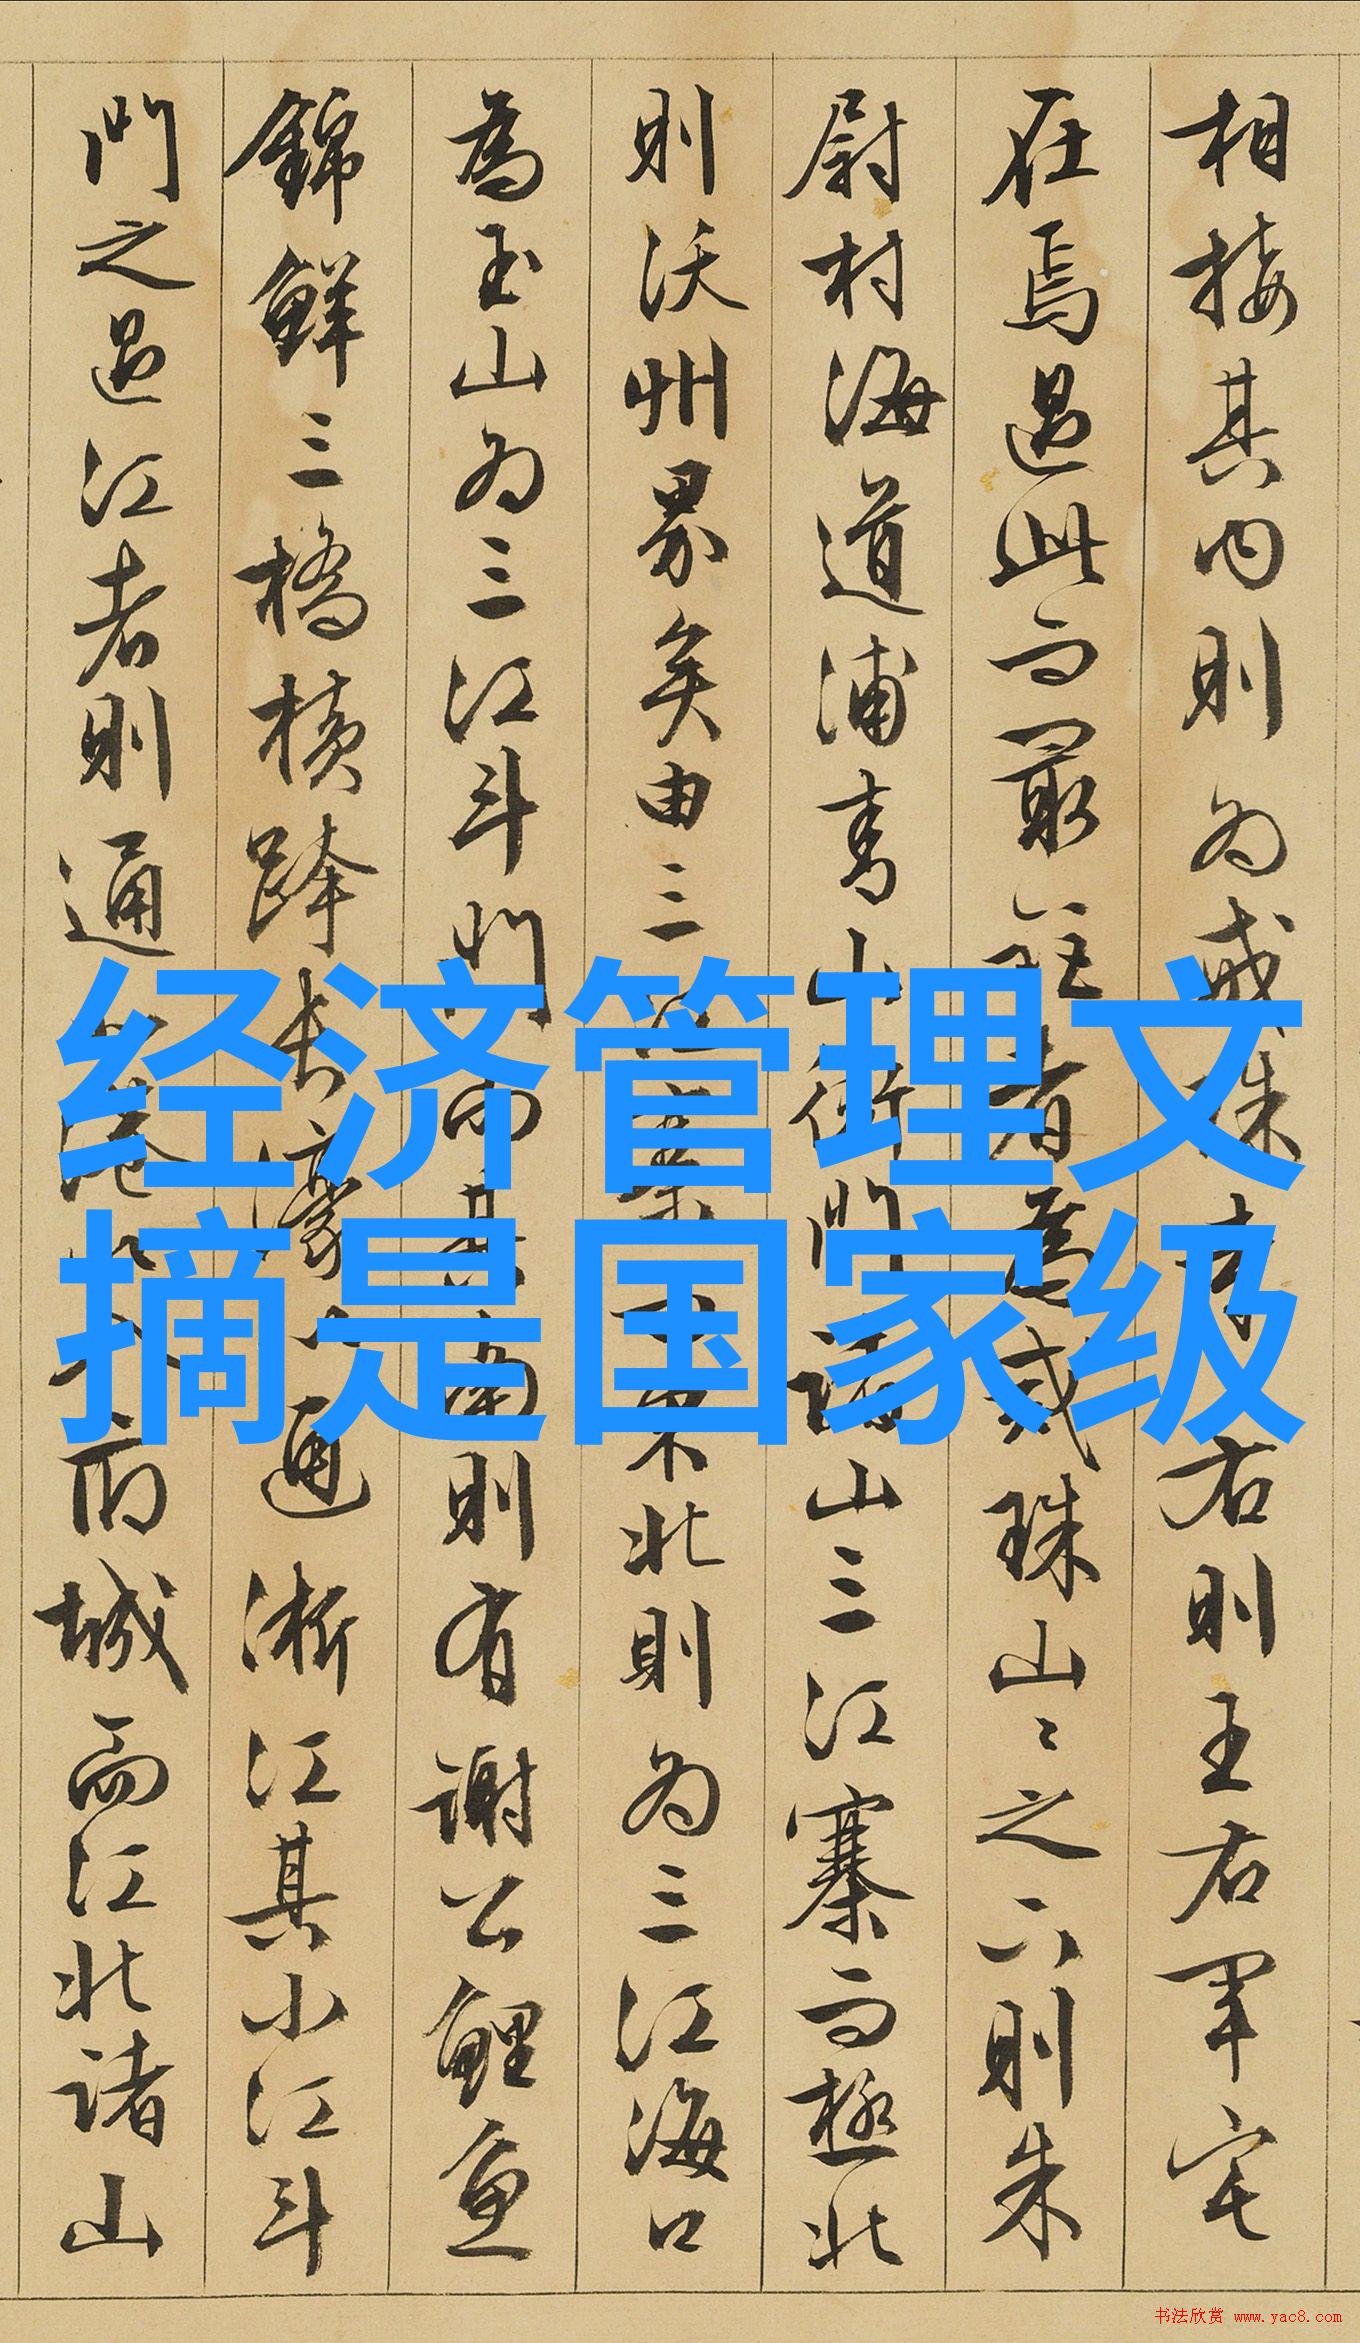 相接其内則為戒珠寺右則王右軍宅
在焉過此而最近者為戒珠山山之下則朱
尉村海道浦青山衙門山三江寨而極北
則沃州界矣由三江東北則為三江海口
為玉山為三江斗門而其南則有謝公鯉魚
錦鮮三橋橫跨長濠通浙江其小江斗
門之過江者則通府城而江北諸山
经济管理文
摘是国家级
书法欣赏 www.yac8.com